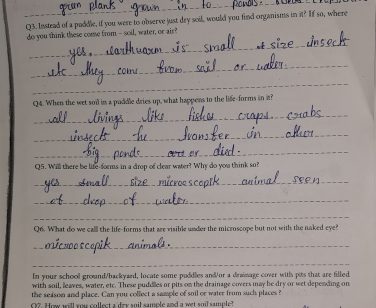 green plants grown in to ponds.
Q3. Instead of a puddle, if you were to observe just dry soil, would you find organisms in it? If so, where
do you think these come from – soil, water, or air?
yes. earthworm is small size insect
etc they come from soil or water.
Q4. When the wet soil in a puddle dries up, what happens to the life-forms in it?
all livings like fishes craps. crabs
insects he transfer in other
big ponds or died.
Q5. Will there be life-forms in a drop of clear water? Why do you think so?
yes small size microocsoptk animal seen
of drop of water.
Q6. What do we call the life-forms that are visible under the microscope but not with the naked eye?
microoscepik animals.
In your school ground/backyard, locate some puddles and/or a drainage cover with pits that are filled
with soil, leaves, water, etc. These puddles or pits on the drainage covers may be dry or wet depending on
the season and place. Can you collect a sample of soil or water from such places?
Q7. How will you collect a dry soil sample and a wet soil sample?